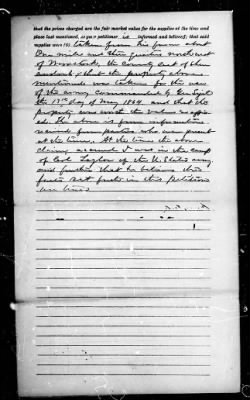 that the prices charged are the fair market value for the supplies at the time and
place last mentioned, as your petitioner is informed and believes; that said
supplies were (8) taken from his farm about
One mile and three quarters northeast
of Woodstock, the County seat of Shen
andoah, & that the property above
mentioned was taken for the use
of the army commanded by Gen Sigel
the 13th day of May 1864 and that the
property was worth the values so affix
ed. The above is from information
received from parties who were present
at the time. At the time the above
claims accrued I was in the camp
of Col. Taylor of the U. States army
and further that he believes the
facts set forth in this petition
are true